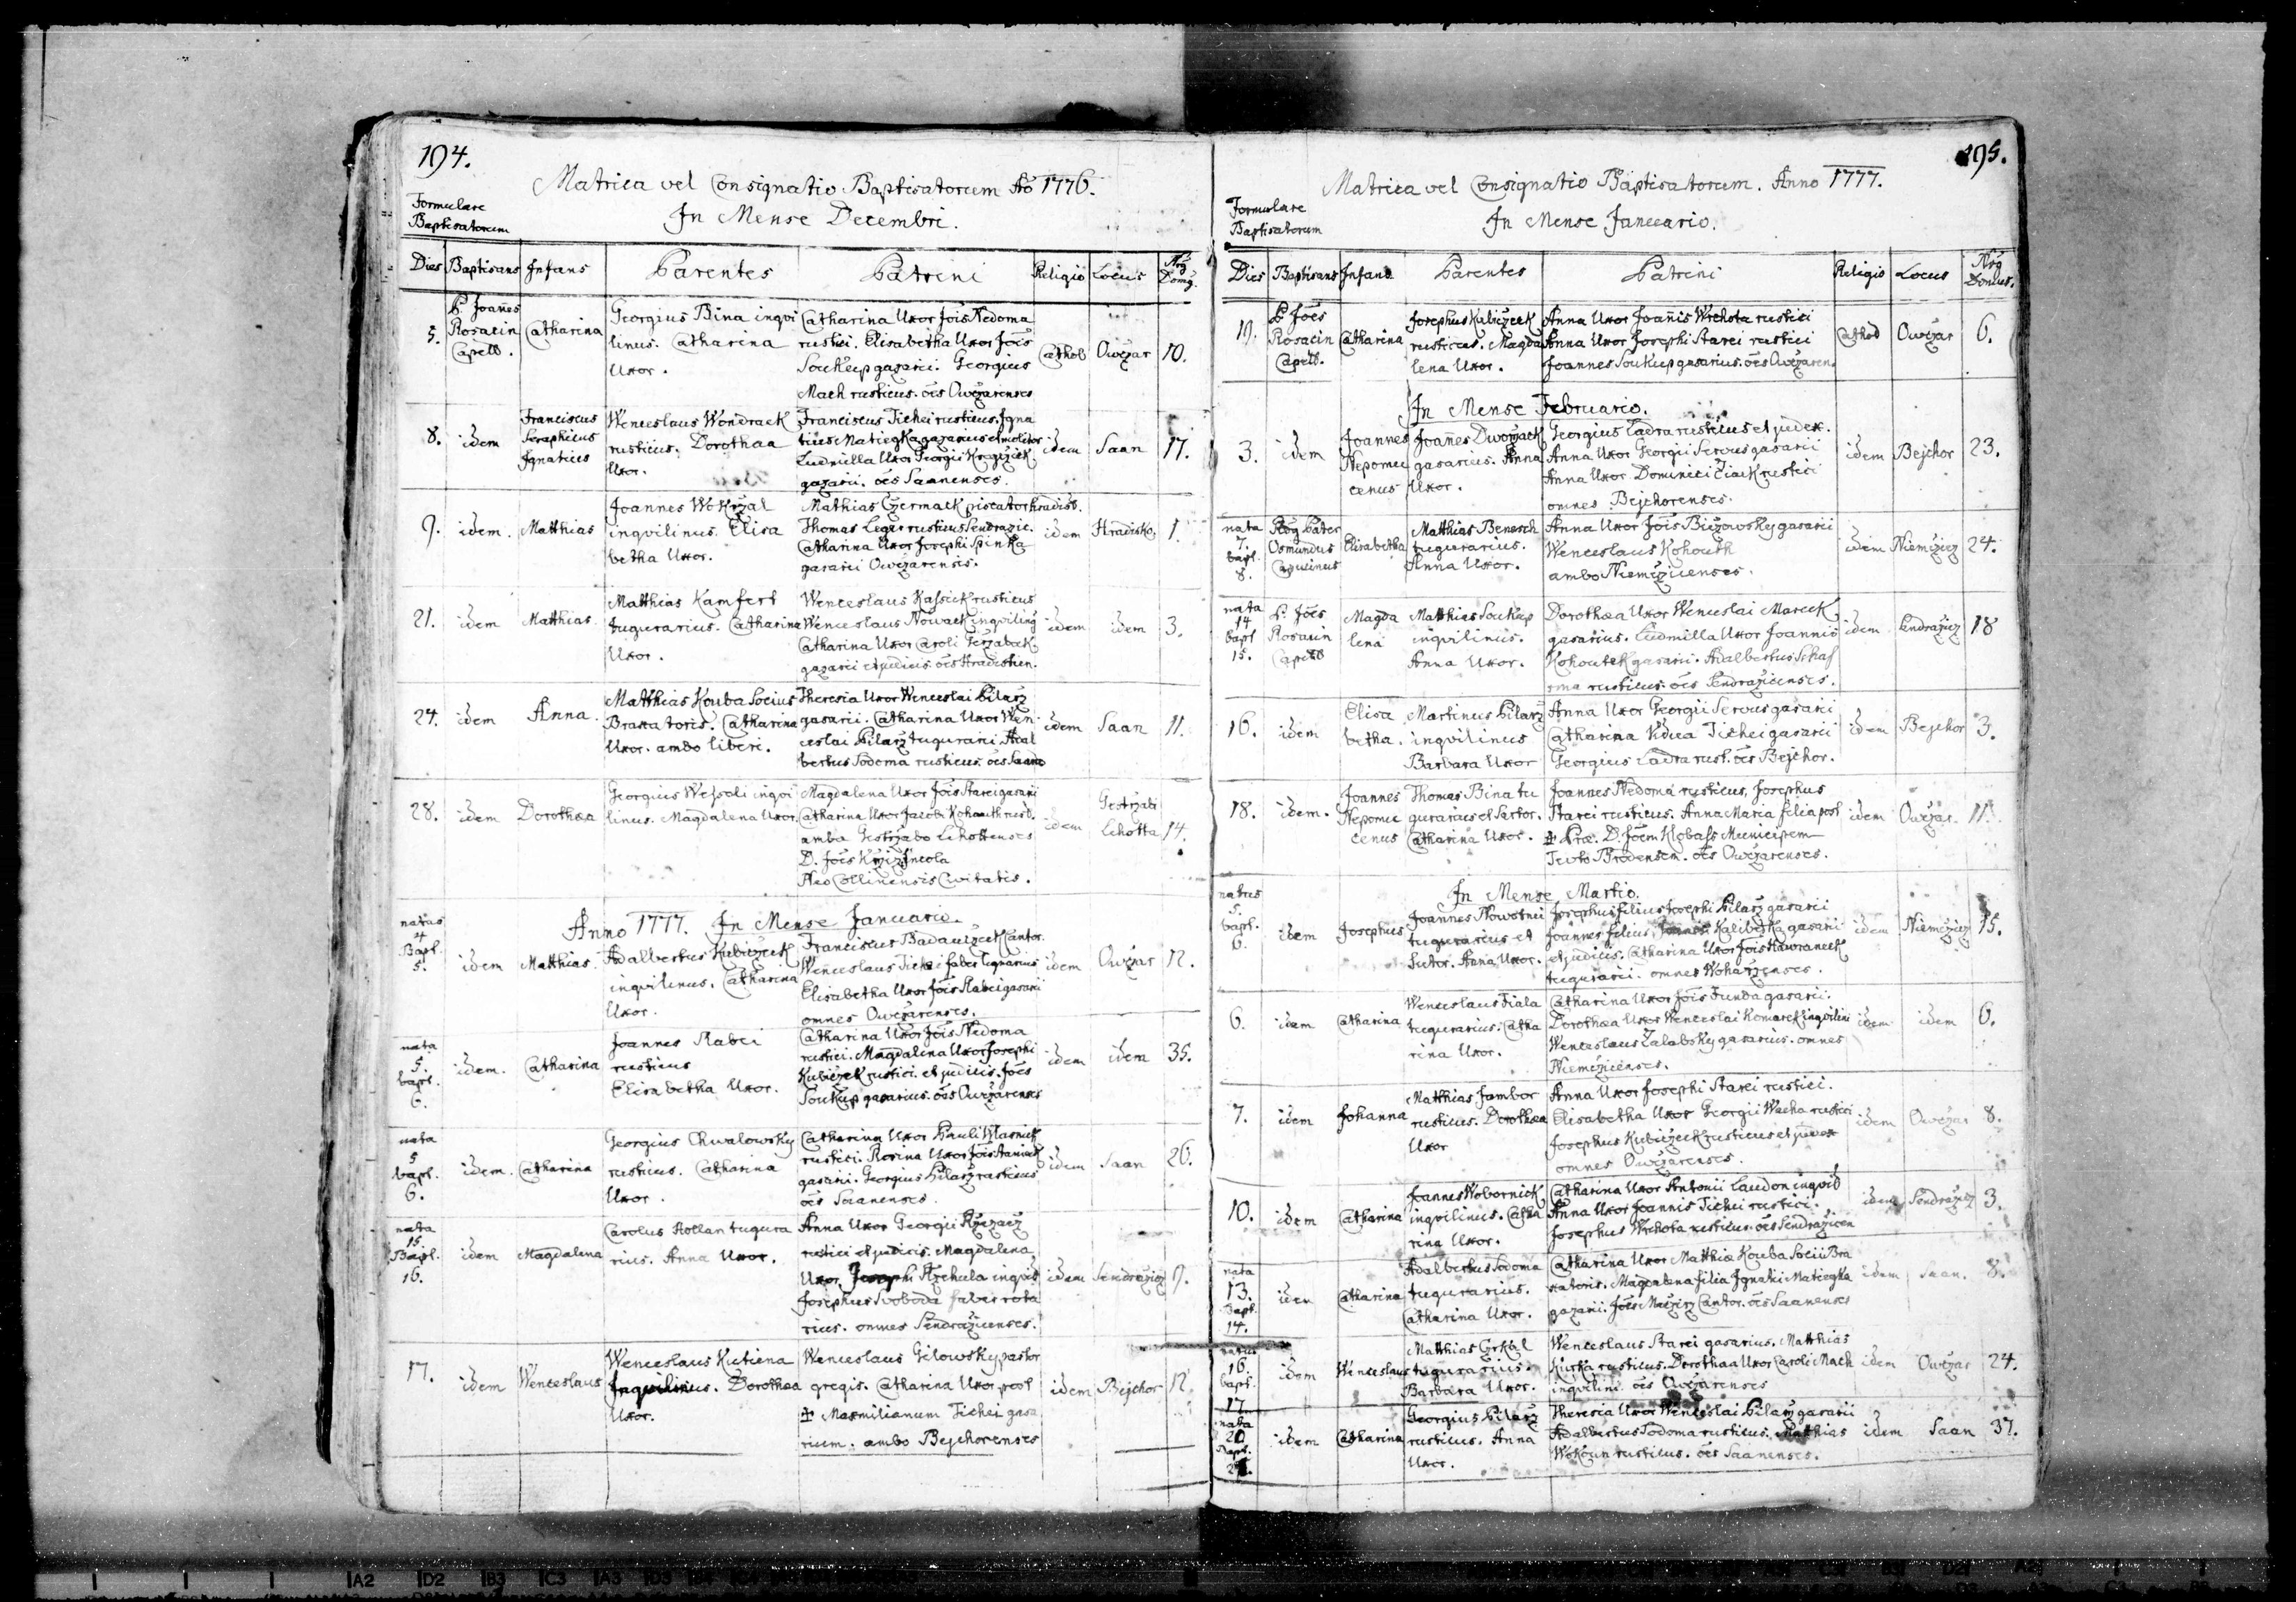 194.
Matrica vel Consignatio Baptisatorum Aō 1776.
Formulare
Baptisatorum
In Mense Decembri.
Dies Baptisans Infans Parentes Patrini Religio Locus Nrg Domg.
5.
P. Joañes
Rosacin
Capell.
Catharina
Georgius Bina inqvi
linus. Catharina
Uxor.
Catharina Uxor Jōis Nedoma
rustici. Elisabetha Uxor Jōis
Soukup gazarii. Georgius
Mach rusticus. ōes Owczarenses
Cathol
Owczar
10.
8.
idem
Franciscus
Seraphicus
Ignatius
Wenceslaus Wondraek
rusticus. Dorothaa
Uxor.
Franciscus Tichei rusticus. Igna
tius Matiegka gazarius et molitor
Ludmilla Uxor Georgii
gazarii. ōes Saanenses.
idem
Saan
17.
9.
idem.
Matthias
Joannes Wokrzal
inqvilinus. Elisa
betha Uxor.
Mathias Czermack piscator hradist.
Thomas Leger rusticus Sendrazic.
Catharina Uxor Josephi Spinka
gazarii Owczarensis.
idem
Hradisko,
1.
21.
idem
Matthias.
Matthias Kamfert
tugurarius. Catharina
Uxor.
Wenceslaus Kassick rusticus
Wenceslaus Nowack inqviling
Catharina Uxor Caroli Jerzabeck
gazarii et judicis. ōes Hradistien.
idem
idem
3.
24.
idem
Anna.
Matthias Kouba Socius
Braxatoris. Catharina
Uxor. ambo liberi.
Theresia Uxor Wenceslai Pilarz
gasarii. Catharina Uxor Wen
ceslai Pilarz tugurarii. Adal
bertus Sodoma rusticus. ōes
idem
Saan
11.
28.
idem
Dorothæa
Georgius Wessoli inqvi
linus. Magdalena Uxor.
Magdalena Uxor Jōis Starei gasarii
Catharina Uxor Jacobi Kohauth rust.
amba Gestrzabo Lehottenses
D. Jōes Krziz Incola
Neo Collinensis Civitatis.
idem
Gestrzabi
Lehotta
14.
Anno 1777. In Mense Januario.
natus
4
Bapt.
5.
idem
Matthias.
Adalbertus Kubiczeck
inqvilinus. Catharina
Uxor.
Franciscus Badauczeck Cantor.
Wenceslaus Tichei faber lignarius
Elisabetha Uxor Jōis Slabei gasarii
omnes Owczarenses.
idem
Owczar
12.
nata
5.
bapt.
6.
idem.
Catharina
Joannes Slabei
rusticus
Elisabetha Uxor.
Catharina Uxor Jōis Nedoma
rustici. Magdalena Uxor Josephi
Kubiczek rustici. et judicis. Jōes
Soukup gasarius. ōes Owczarenses
idem
idem
35.
nata
5
bapt.
6.
idem.
Catharina
Georgius Chwalowsky
rusticus. Catharina
Uxor.
Catharina Uxor Pauli Wlasnick
rustici. Rosina Uxor Jōis Staniek
gasarii. Georgius Pilarz rusticus
ōes Saanenses.
idem
Saan
26.
nata
15.
Bapt.
16.
idem
Magdalena
Carolus Hollan tugura
rius. Anna Uxor.
Anna Uxor Georgii
rustici et judicis. Magdalena
Uxor Josephi Strzehula inqvil
Josephus Svoboda faber rota
rius. omnes Sendrazicenses.
idem
Sendrazicz
9.
17.
idem
Wenceslaus
Wenceslaus Kutiena
Inquilinus. Dorothea
Uxor.
Wenceslaus Gilowsky pastor
gregis. Catharina Uxor post
‡ Maxmilianum Tichei gasa
rium. ambo Bejchorenses
idem
Bejchor
12.
195.
Matrica vel Consignatio Baptisatorum. Anno 1777.
Formulare
Baptisatorum
In Mense Januario.
Dies Baptisans Infans Parentes Patrini Religio Locus Nrg Domus.
19.
P. Jōes
Rosacin
Capell.
Catharina
Josephus Kubiczeck
rusticus. Magda
lena Uxor.
Anna Uxor Joañis Wrchota rustici
Anna Uxor Josephi Starei rustici
Joannes Soukup gasarius. ōes Owczaren
Cathol
Owczar
6.
In Mense Februario.
3.
idem
Joannes
Nepomu
cenus
Joañes Dworzack
gasarius. Anna
Uxor.
Georgius Ladra rusticus et judex.
Anna Uxor Georgii Servus gasarii
Anna Uxor Dominici Ziack rustici
omnes Bejchorenses.
idem
Bejchor
23.
nata
7.
bapt.
8.
Rdg Pater
Osmundus
Capucinus
Elisabetha
Matthias Benesch
tugurarius.
Anna Uxor.
Anna Uxor Jōis Biczowsky gasarii
Wenceslaus Kohouth
ambo Niemczicenses.
idem
Niemczicz
24.
nata
14
bapt
15.
P. Jōes
Rosacin
Capell
Magda
lena
Matthias Soukup
inqvilinus.
Anna Uxor.
Dorothæa Uxor Wenceslai Mareck
gasarius. Ludmilla Uxor Joannis
Kohoutek gasarii. Adalbertus Schaf
rna rusticus. ōes Sendrazicenses.
idem
Sendrazicz
18
16.
idem
Elisa
betha.
Martinus Pilarz
inqvilinus
Barbara Uxor
Anna Uxor Georgii Servus gasarii
Catharina Vidua Tichei gasarii
Georgius Ladra rust. ōes Bejchor.
idem
Bejchor
3.
18.
idem.
Joannes
Nepomu
cenus
Thomas Bina tu
gurarius et Sartor.
Catharina Uxor.
Joannes Nedoma rusticus, Josephus
Starei rusticus. Anna Maria filia post
‡ Præ. D. Jōem Klobass Municipem
Teuto Brodensem. ōes Owczarenses.
idem
Owczar.
11.
In Mense Martio.
natus
5.
bapt.
6.
idem
Josephus
Joannes Nowotnei
tugurarius et
Sutor. Anna Uxor.
Josephus filius Josephi Pilarz gasarii
Joannes filius Kalibeska gasarii
et judicis. Catharina Uxor Jōis Hawraneck
tugurarii. omnes Woharzenses.
idem
Niemczicz
15.
6.
idem
Catharina
Wenceslaus Fiala
tugurarius. Catha
rina Uxor.
Catharina Uxor Jōis Funda gasarii.
Dorothæa Uxor Wenceslai Komarek inqvilini
Wenceslaus Zalabsky gasarius. omnes
Niemczicenses.
idem
idem
6.
7.
idem
Johanna
Matthias Jambor
rusticus. Dorothæa
Uxor
Anna Uxor Josephi Starei rustici.
Elisabetha Uxor Georgii Wacha rustici
Josephus Kubiczeck rusticus et judex
omnes Owczarenses.
idem
Owczar
8.
10.
idem
Catharina
Joannes Wobornick
inqvilinus. Catha
rina Uxor.
Catharina Uxor Antonii Laudon inqvil
Anna Uxor Joannis Tichei rustici.
Josephus Wrchota rusticus. ōes Sendrazicen
idem
Sendrazicz
3.
nata
13.
Bapt.
14.
idem
Catharina
Adalbertus Sodoma
tugurarius.
Catharina Uxor.
Catharina Uxor Matthiæ Kouba Socii Bra
xatoris. Magdalena filia Ignatii Matiegka
gazarii. Jōes Cantor. ōes Saanenses
idem
Saan.
8.
natus
16.
bapt.
17
idem
Wenceslaus
Matthias Czrkal
tugurarius.
Barbara Uxor.
Wenceslaus Starei gasarius. Matthias
Kurka rusticus. Dorothaa Uxor Caroli Mach
inqvilini. ōes Owczarenses
idem
Owczar
24.
nata
20
Bapt.
idem
Catharina
Georgius Pilarz
rusticus. Anna
Uxor.
Theresia Uxor Wenceslai Pilarz gasarii
Adalbertus Sodoma rusticus. Matthias
Wokoun rusticus. ōes Saanenses.
idem
Saan
37.